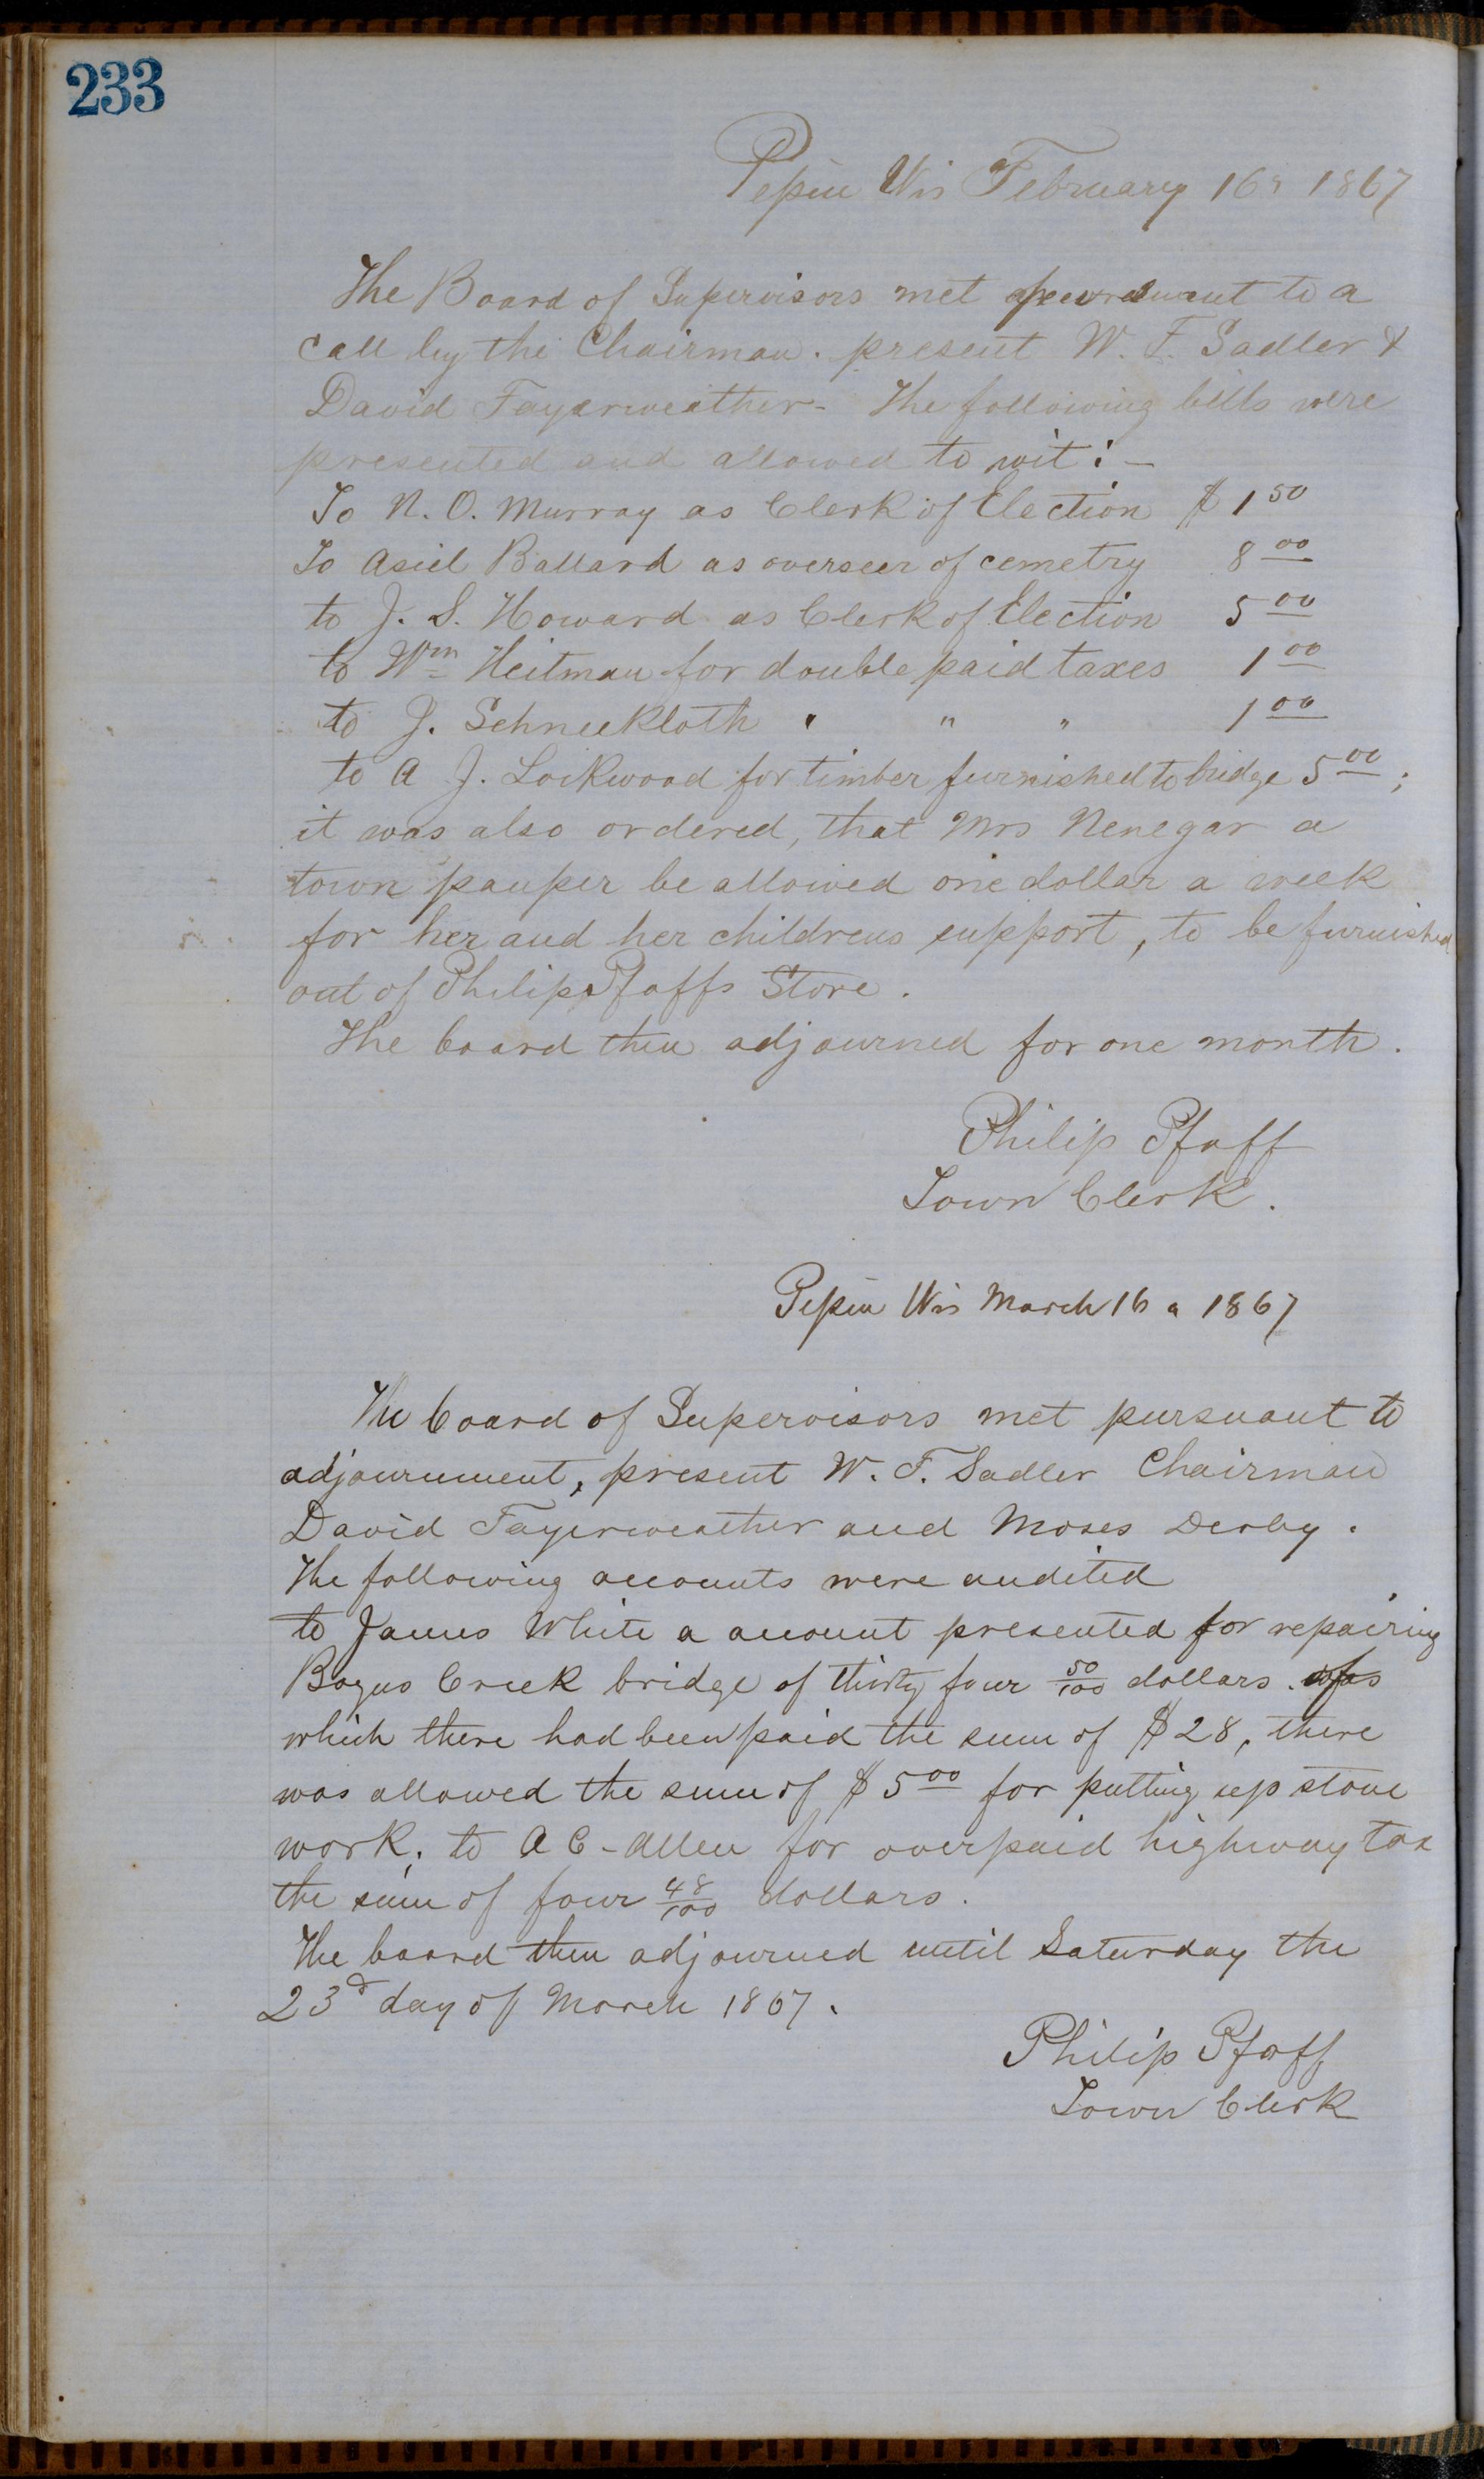 233
Pepin Wis February 16 1867
The Board of Supervisors met pursuant to a
call by the Chairman. present W. F. Sadler &
David Fayerweather - The following bills were
presented and allowed to wit: -
To N. O. Murray as Clerk of Election $ 1 50
To Asiel Ballard as overseer of cemetry 8 00
to J. S. Howard as Clerk of Election 5 00
to Wm Heitman for double paid taxes 1 00
to J. Schneekloth " " " 1 00
to A J. Lockwood for timber furnished to bridge 5 00;
it was also ordered, that Mrs Nenegar a
town pauper be allowed one dollar a week
for her and her childrens support, to be furnished
out of Philip Pfaffs Store.
The board then adjourned for one month.
Philip Pfaff
Town Clerk.
Pepin Wis March 16 1867
The board of Supervisors met pursuant to
adjournment, present W. F. Sadler Chairman
David Fayerweather and Moses Derby.
The following accounts were audited
to James White a account presented for repairing
Bogus Creek bridge of thirty four 50/100 dollars.
which there had been paid the sum of $ 28, there
was allowed the sum of $ 5 00 for putting up stone
work; to A C - Allen for overpaid highway tax
the sum of four 48/100 dollars.
The board then adjourned until Saturday the
23d day of March 1867.
Philip Pfaff
Town Clerk